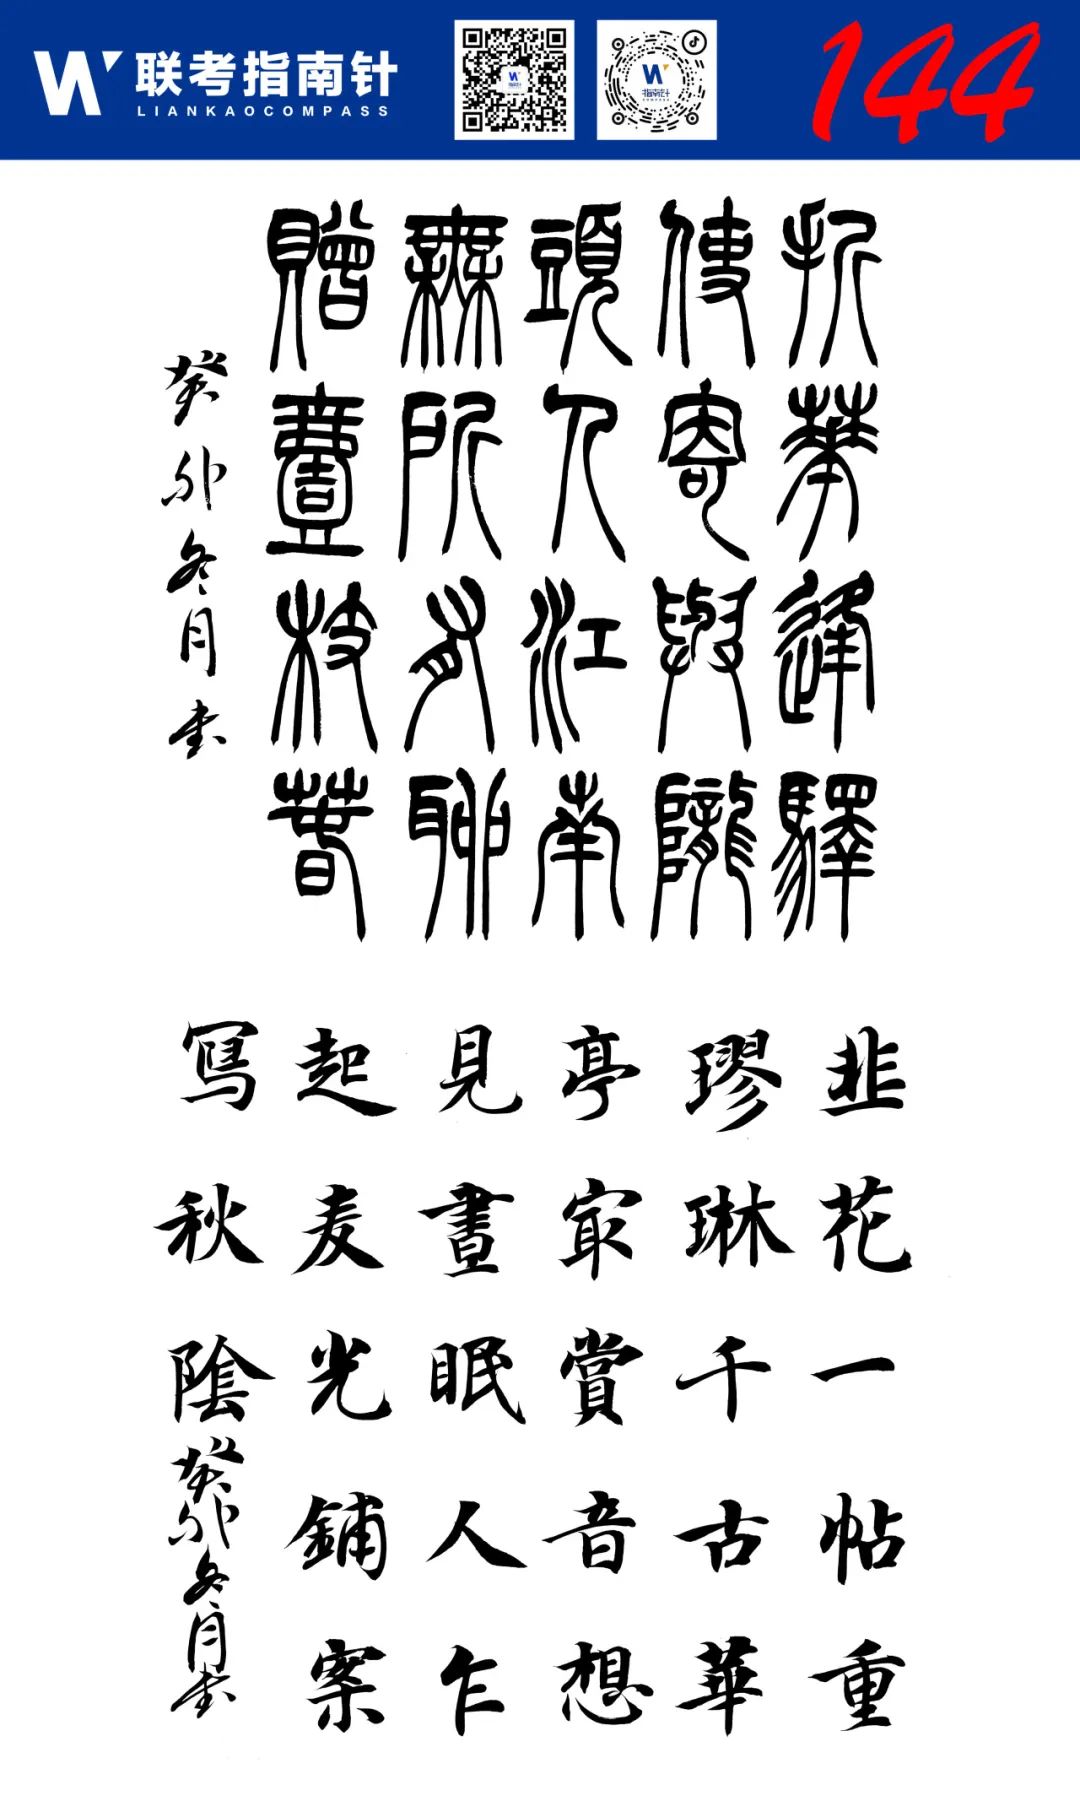 联考指南针
LIANKAOCOMPASS
指南针
COMPASS
144
折華逢驛
使寄與隴
頭人江南
無所有聊
贈壹枝春
癸卯冬月書
韭花一帖重
璆琳千古華
亭冣賞音想
見晝眠人乍
起麦光鋪案
寫秋陰
癸卯冬月書